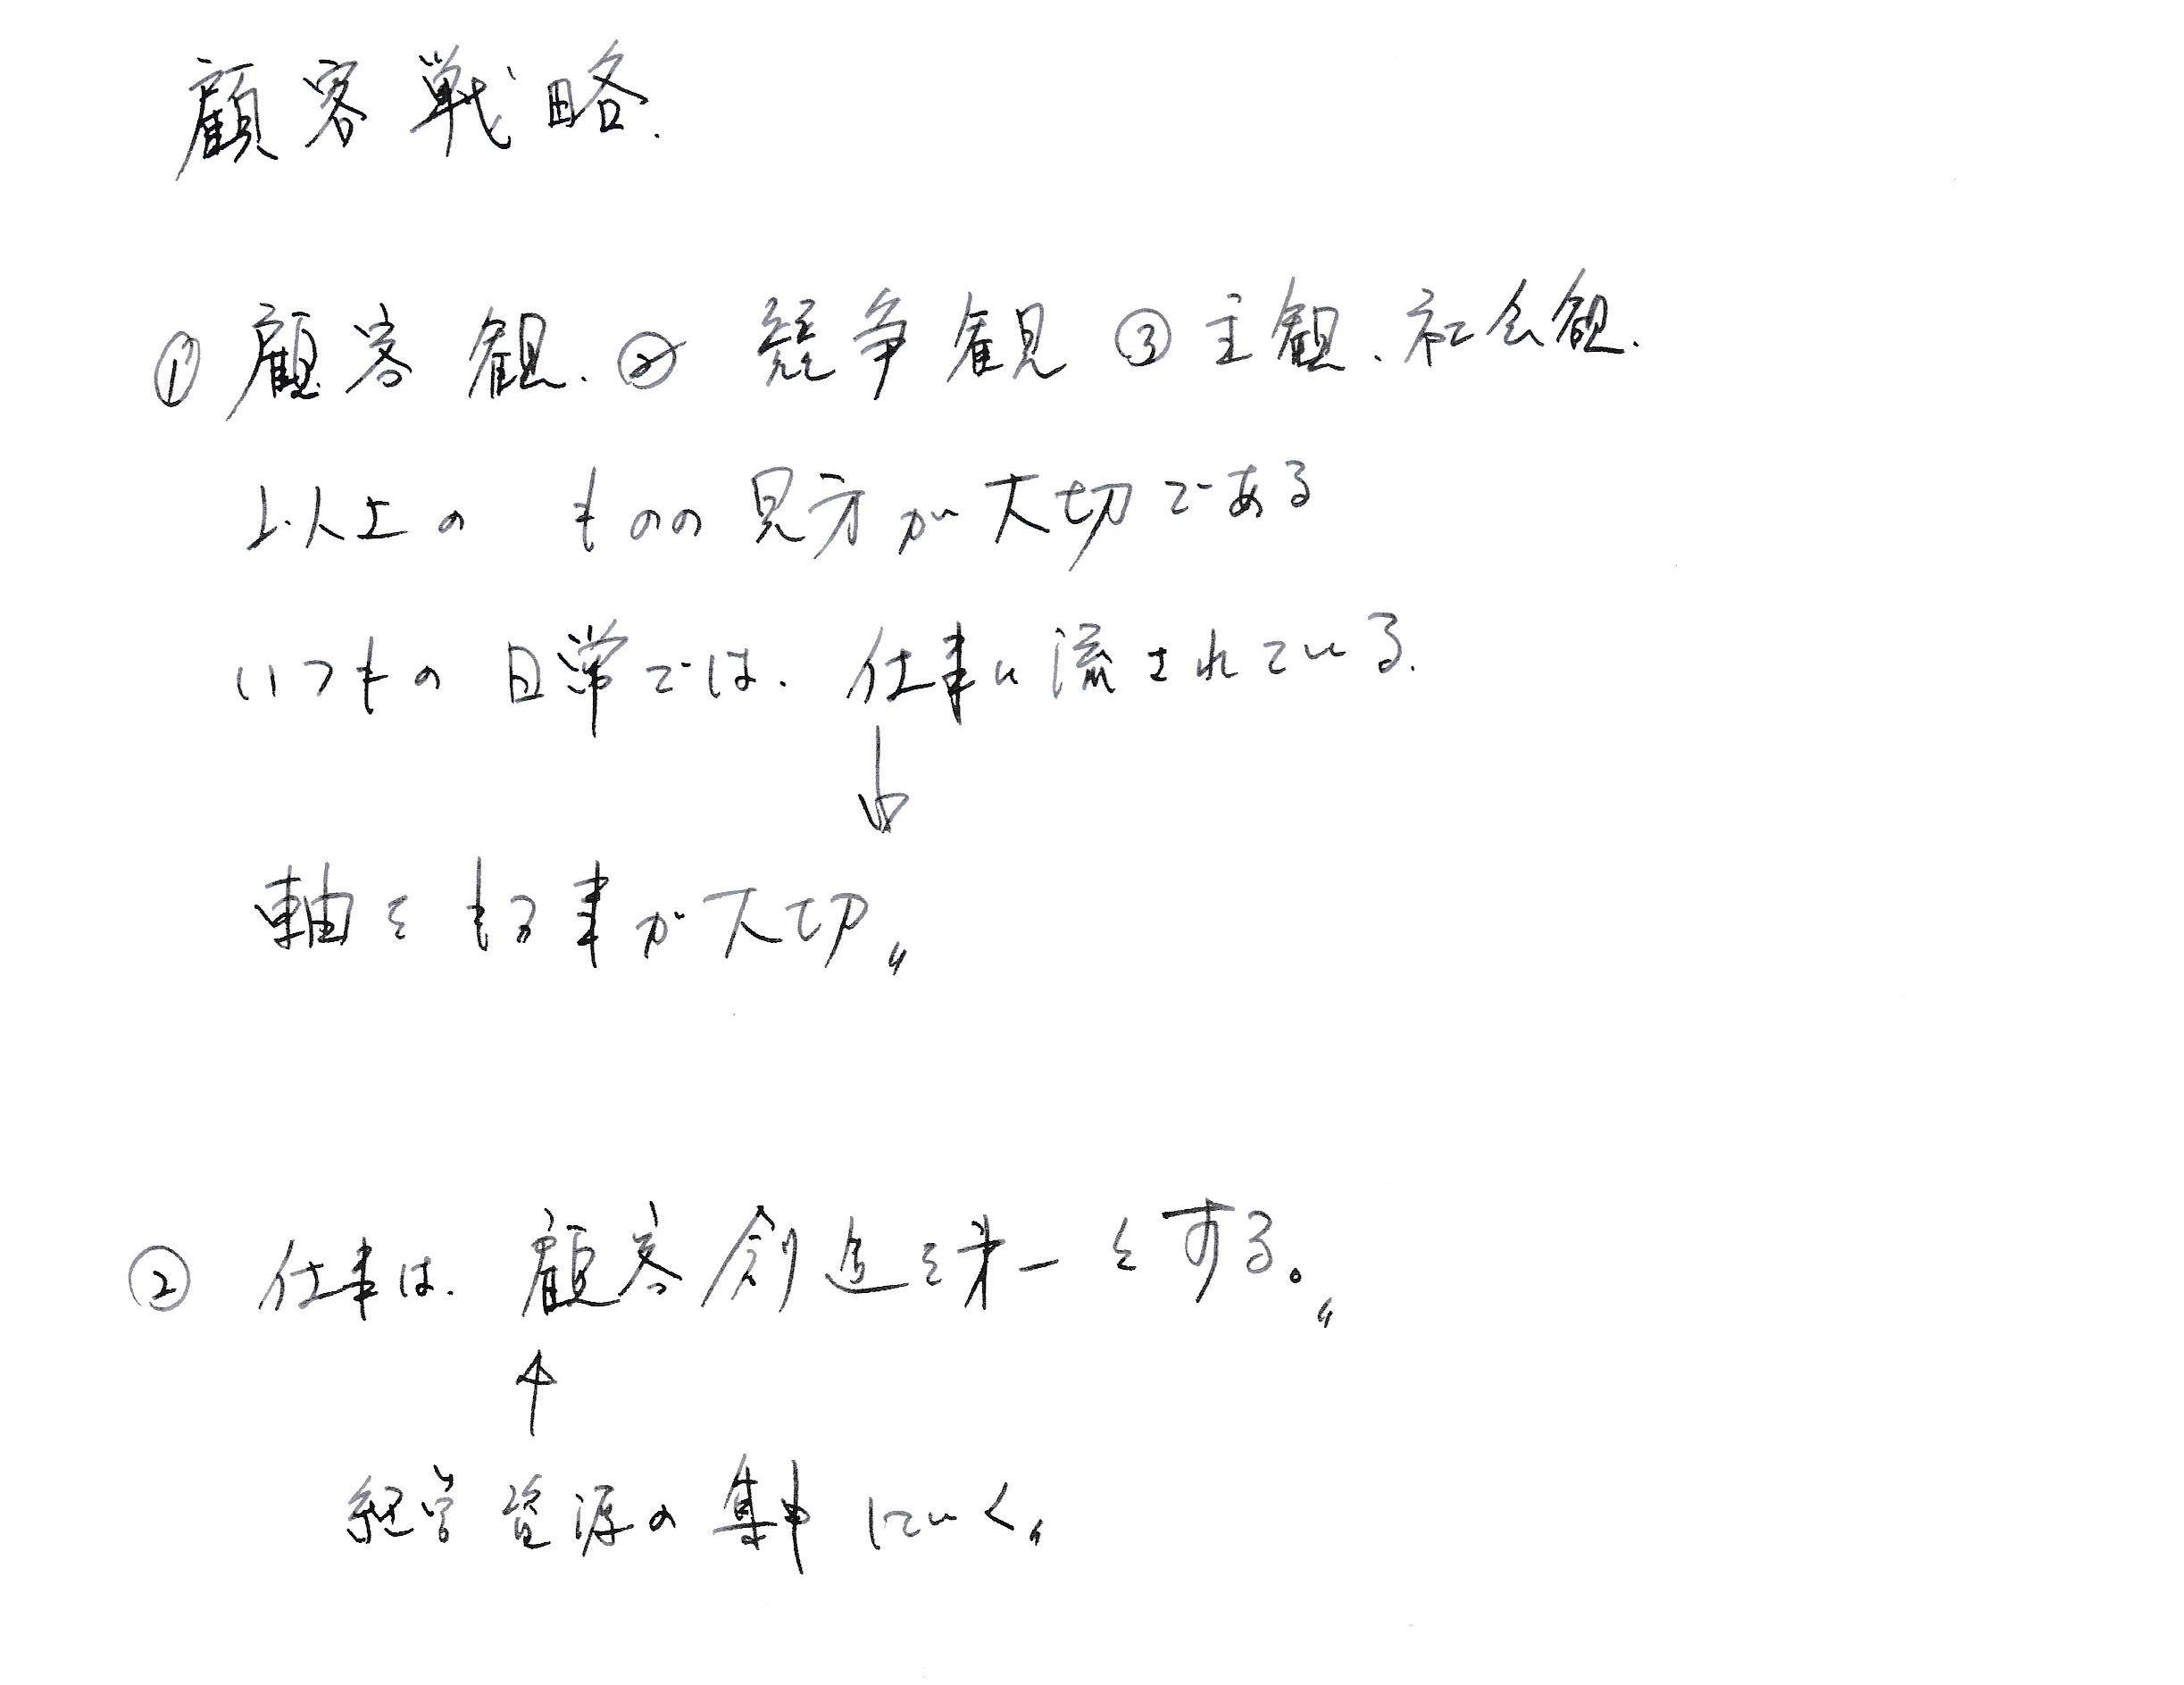 顧客戦略.
① 顧客観. ② 競争観 ③ 主観、社会観.
以上の ものの見方が大切である
いつもの 日常では. 仕事に流されている.
↓
軸をもつ事が大切〃
② 仕事は. 顧客創造を第一とする。〃
↑
経営資源の集中 にいく〃